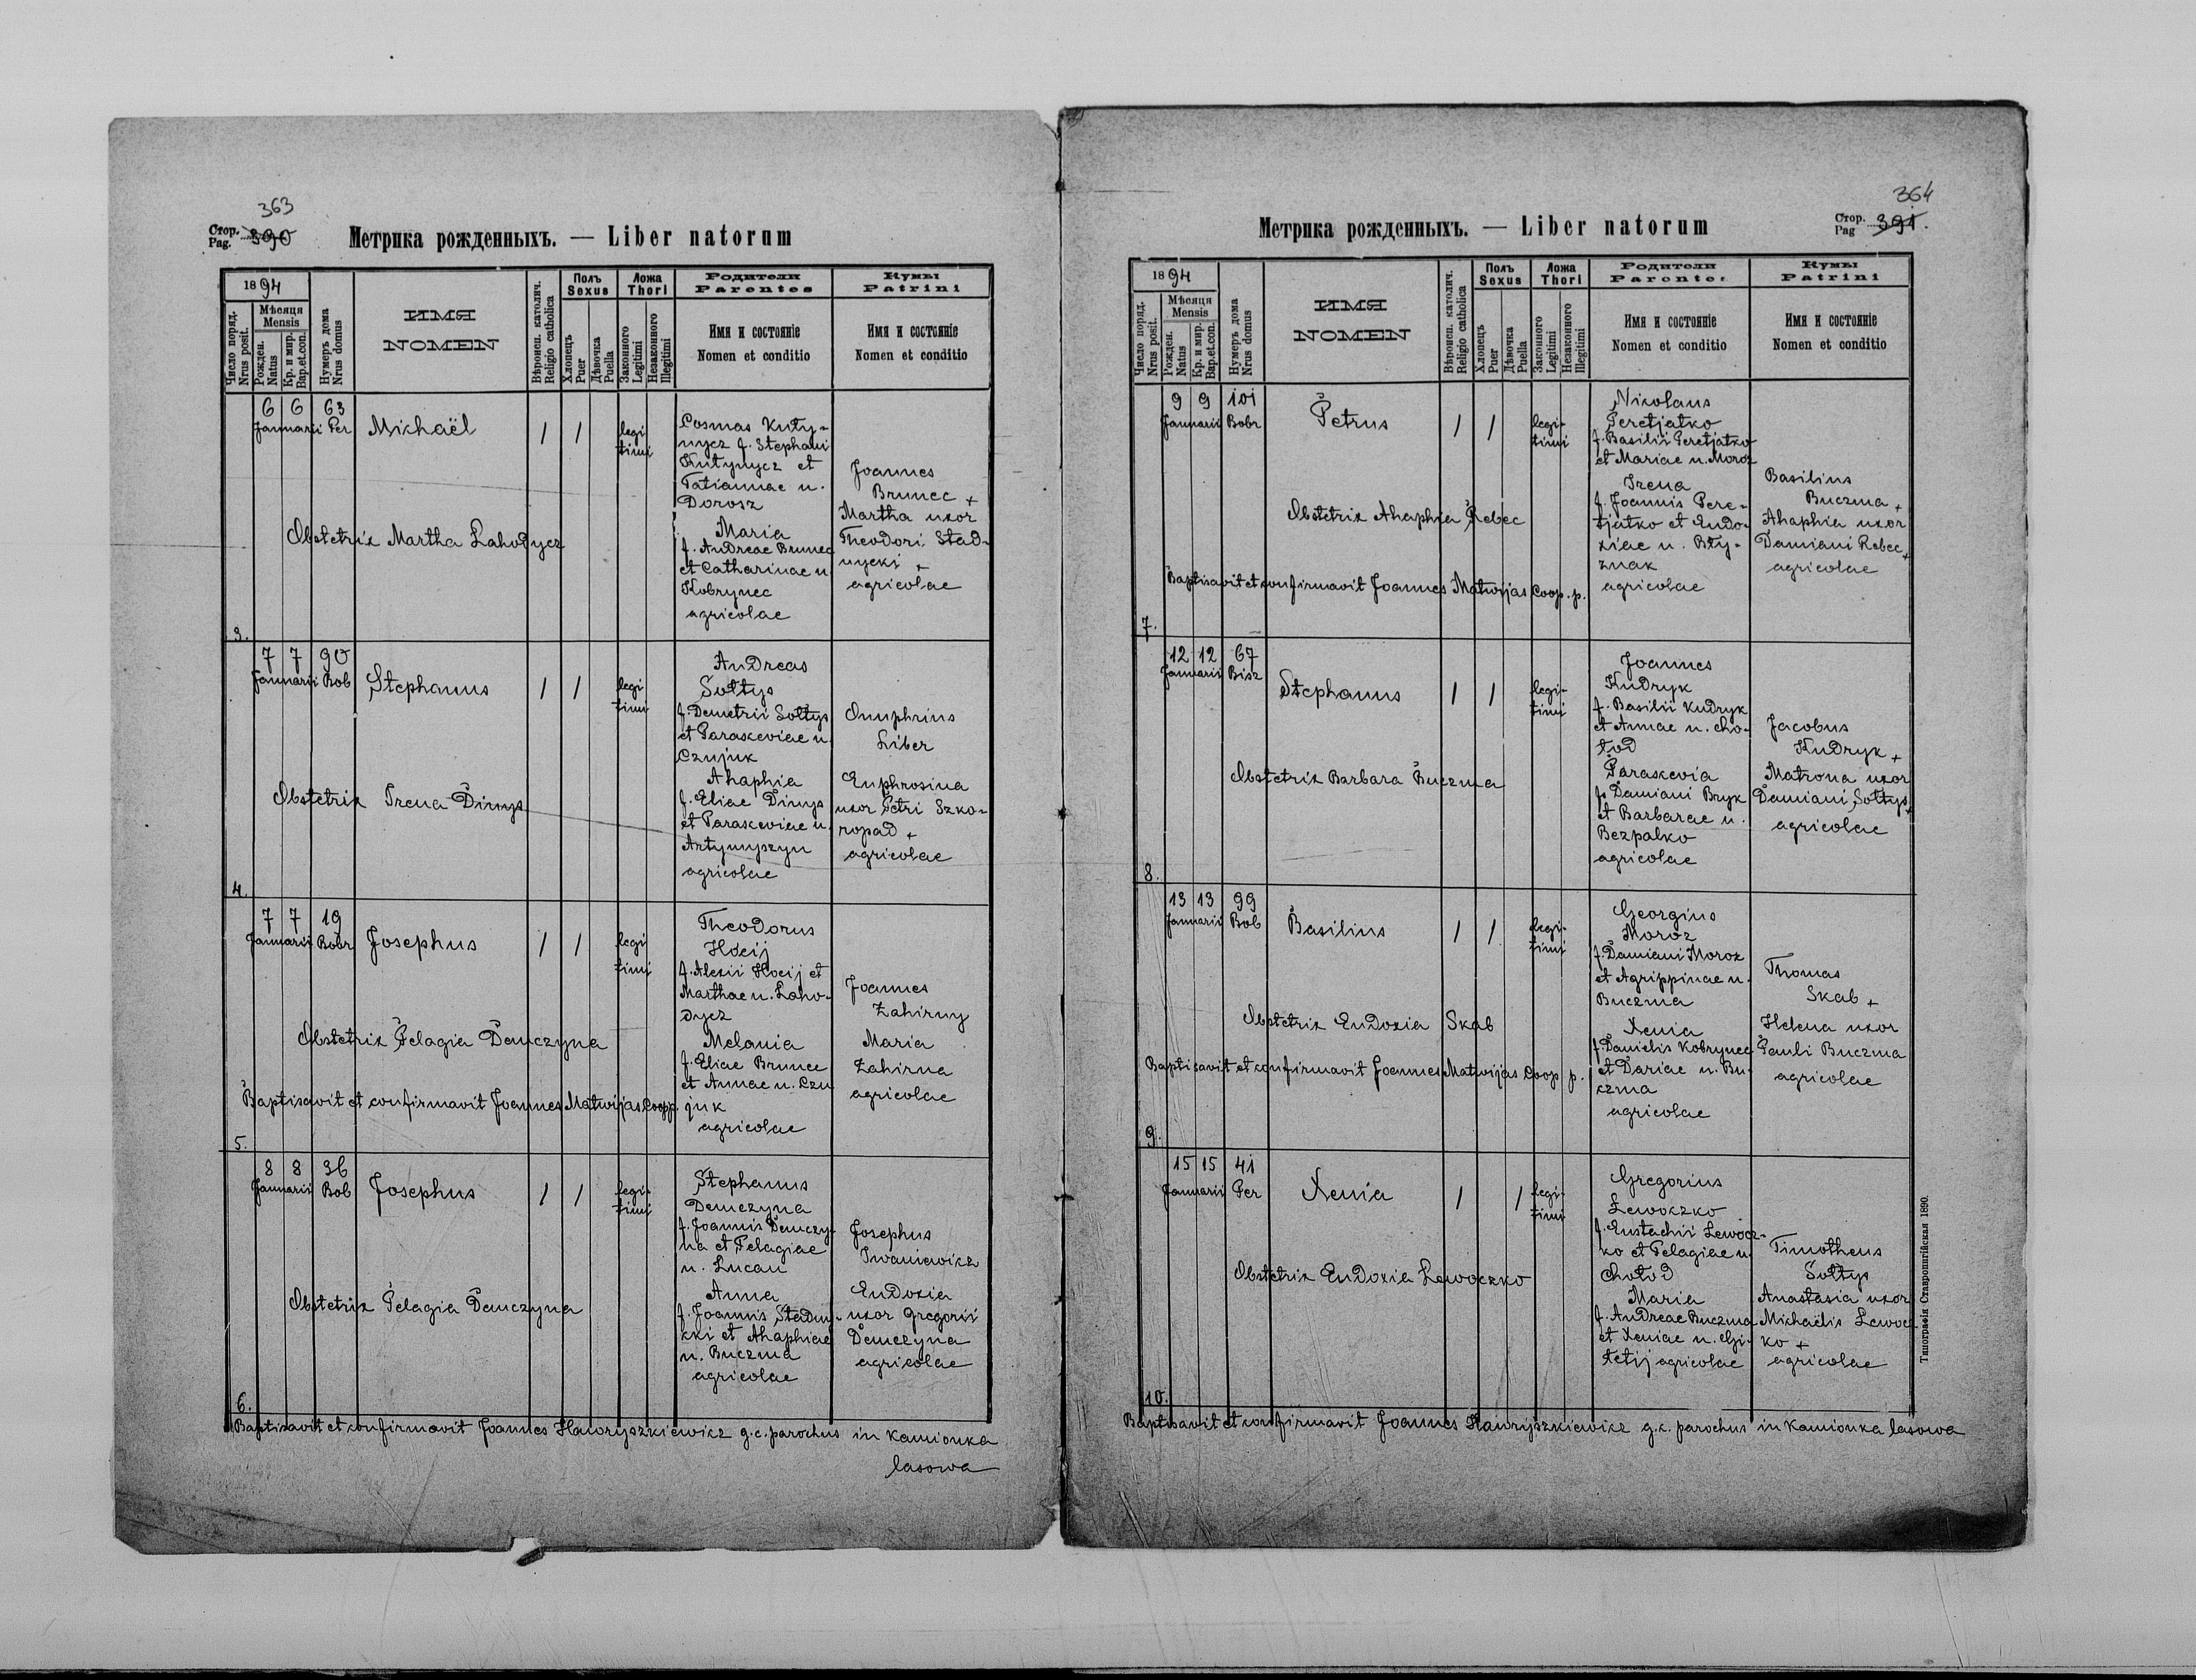 363
Стор.
Pag. 390
Метрика рожденныхъ. — Liber natorum
1894
Число поряд.
Nrus posit.
Мѣсяця
Mensis
Рожден.
Natus
Кр. и мир.
Bap.et.con.
Нумеръ дома
Nrus domus
ИМЯ
NOMEN
Вѣроисп. католич.
Religio catholica
Полъ
Sexus
Хлопецъ
Puer
Дѣвочка
Puella
Ложа
Thori
Законного
Legitimi
Незаконного
Illegitimi
Родители
Parentes
Имя и состояніе
Nomen et conditio
Кумы
Patrini
Имя и состояніе
Nomen et conditio
3.
6 6 63
Januarii Per
Mikhaël
/ /
legi
timi
Cosmas Kuty-
nycz f. Stephani
Kutynycz et
Tatiannae n.
Dorosz
Maria
f. Andreae Brunec
et Catharinae n.
Kobrynec
agricolae
Joannes
Brunec +
Martha uxor
Theodori Stad-
nycki +
agricolae
Obstetrix Martha Lahodycz
4.
7 7 90
Januarii Bob
Stephanus
/ /
legi
timi
Andreas
Sołtys
f. Demetrii Sołtys
et Paraskeviae n.
Czujuk
Ahaphia
f. Eliae Dinys
et Paraskeviae n.
Artymyszyn
agricolae
Onuphrius
Liber
Euphrosina
uxor Petri Szko-
ropad +
agricolae
Obstetrix Irena Dinys
5.
7 7 19
Januarii Bobr
Josephus
/ /
legi
timi
Theodorus
Hocij
f. Alexii Hocij et
Marthae n. Laho-
dycz
Melania
f. Eliae Brunec
et Annae n. Czu
juk
agricolae
Joannes
Zahirny
Maria
Zahirna
agricolae
Obstetrix Pelagia Demczyna
Baptisavit et confirmavit Joannes Matwijas Coop.p.
6.
8 8 36
Januarii Bob
Josephus
/ /
legi-
timi
Stephanus
Demczyna
f. Joannis Demczy-
na et Pelagiae
n. Lucan
Anna
f. Joannis Stadny-
cki et Ahaphiae
n. Buczma
agricolae
Josephus
Iwaniewicz
Eudoxia
uxor Gregorii
Demczyna
agricolae
Obstetrix Pelagia Demczyna
Baptisavit et confirmavit Joannes Hawryszkiewicz g.c. parochus in Kamionka
lasowa
364
Метрика рожденныхъ. — Liber natorum
Стор.
Pag 391.
1894
Число поряд.
Nrus posit.
Мѣсяця
Mensis
Рожден.
Natus
Кр. и мир.
Bap.et.con.
Нумеръ дома
Nrus domus
ИМЯ
NOMEN
Вѣроисп. католич.
Religio catholica
Полъ
Sexus
Хлопецъ
Puer
Дѣвочка
Puella
Ложа
Thori
Законного
Legitimi
Незаконного
Illegitimi
Родители
Parentes
Имя и состояніе
Nomen et conditio
Кумы
Patrini
Имя и состояніе
Nomen et conditio
7.
9 9 101
Januarii Bobr
Petrus
/ /
legi-
timi
Nikolaus
Peretjatko
f. Basilii Peretjatko
et Mariae n. Moroz
Irena
f. Joannis Pere-
tjatko et Eudo-
xiae n. Bły-
znak
agricolae
Basilius
Buczma +
Ahaphia uxor
Damiani Rebec +
agricolae
Obstetrix Ahaphia Rebec
Baptisavit et confirmavit Joannes Matwijas Coop. p.
8.
12 12 67
Januarii Bisz
Stephanus
/ /
legi-
timi
Joannes
Kudryk
f. Basilii Kudryk
et Annae n. Cho-
łod
Paraskevia
f. Damiani Bryk
et Barbarae n.
Bezpalko
agricolae
Jacobus
Kudryk +
Matrona uxor
Damiani Sołtys +
agricolae
Obstetrix Barbara Buczma
9.
13 13 99
Januarii Bob
Basilius
/ /
legi-
timi
Georgius
Moroz
f. Damiani Moroz
et Agrippinae n.
Buczma
Xenia
f. Danielis Kobrynec
et Dariae n. Bu-
czma
agricolae
Thomas
Skab +
Helena uxor
Pauli Buczma
agricolae
Obstetrix Eudoxia Skab
Baptisavit et confirmavit Joannes Matwijas Coop p.
10.
15 15 41
Januarii Per
Xenia
/ /
legi-
timi
Gregorius
Lewoczko
f. Eustachii Lewocz-
ko et Pelagiae n.
Chołod
Maria
f. Andreae Buczma
et Xeniae n.
agricolae
Timotheus
Sołtys
Anastasia uxor
Michaelis Lewocz
ko +
agricolae
Obstetrix Eudoxia Lewoczko
Baptisavit et confirmavit Joannes Hawryszkiewicz g.c. parochus in Kamionka lasowa
Типографія Ставропигійская 1890.